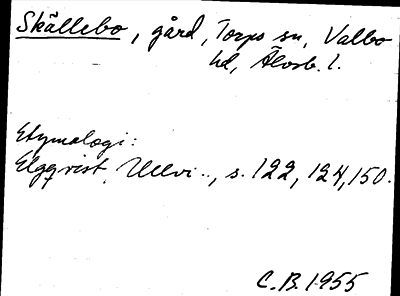 Skällebo, gård, Torps sn, Valbo
hd, Älvsb. l.
Etymologi:
Elgqvist, Ullvi.., s. 122, 124, 150.
C.B. 1955